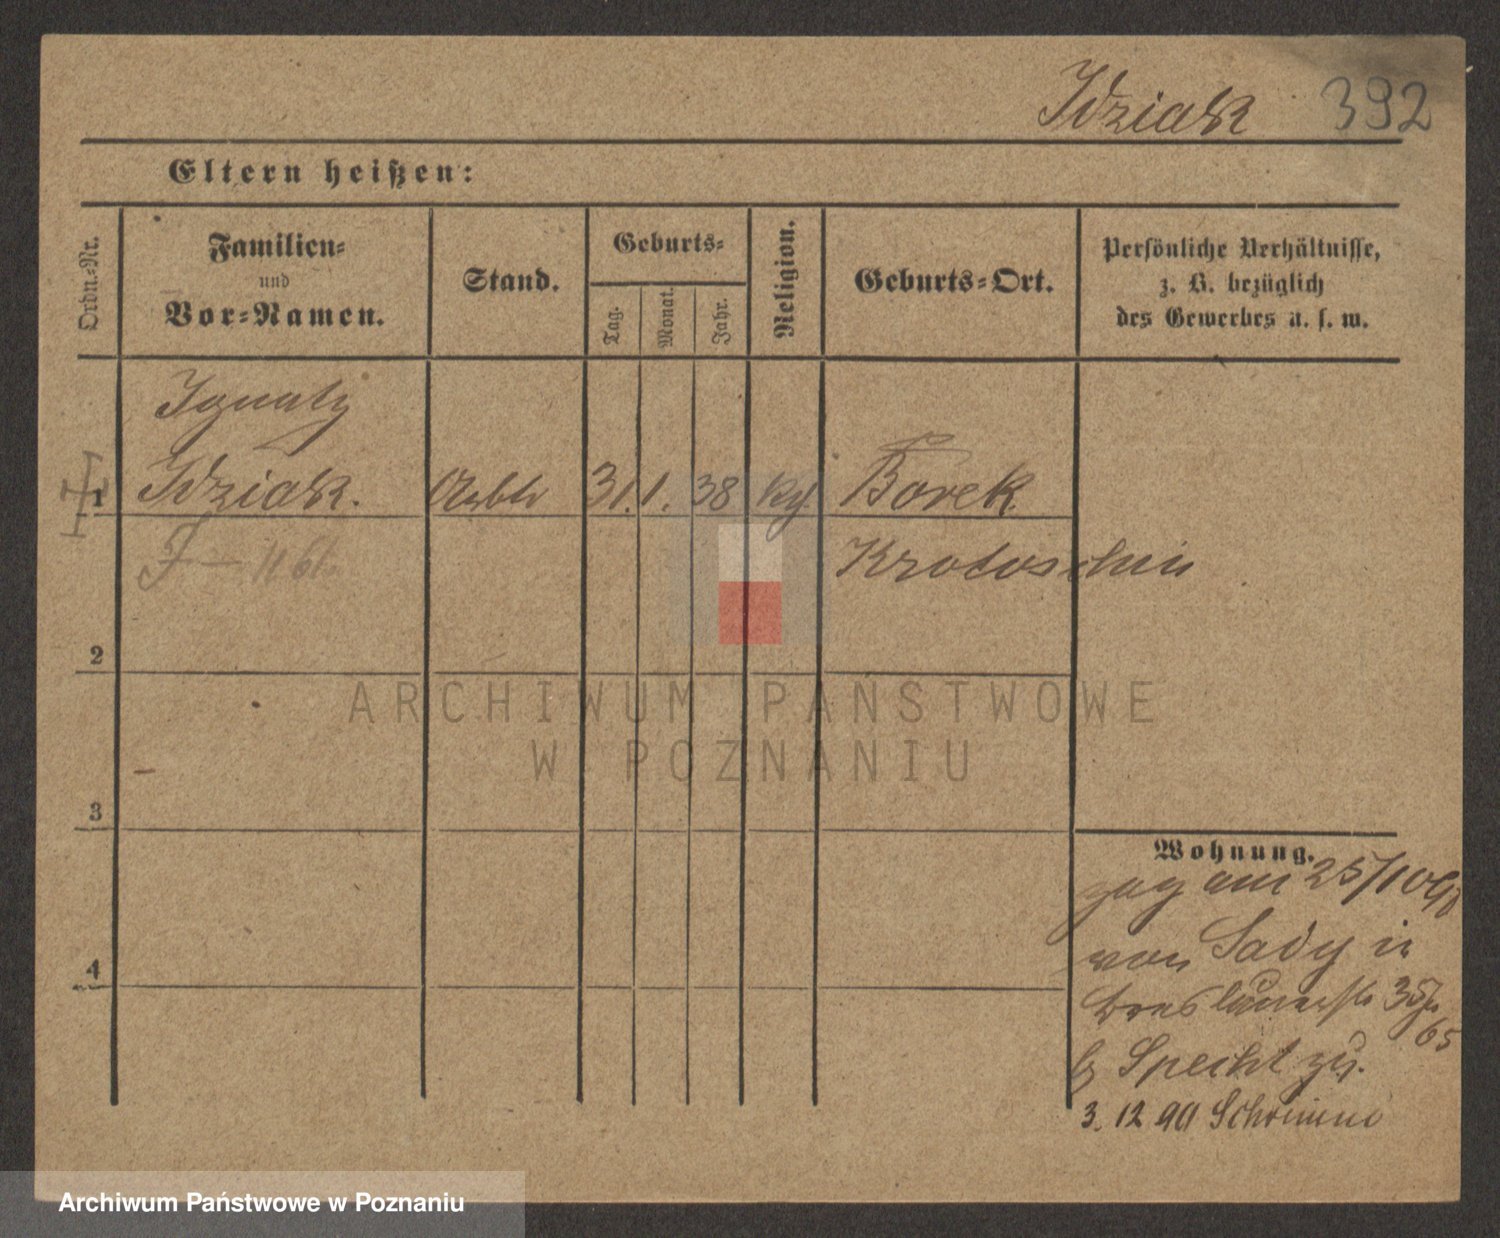 Idziak 392
Eltern heißen:
Ordn.-Nr.
Familien-
und
Vor-Namen.
Stand.
Geburts-
Tag.
Monat.
Jahr.
Religion.
Geburts-Ort.
Persönliche Verhältnisse,
z. B. bezüglich
des Gewerbes u. s. w.
Ignatz
1 Idziak. Arbtr 31. 1. 38 Borek
Krotoschin
2
3
4
Wohnung.
zog am 25/10
von Sady in
Breslauerstr 35
65
b Specht zu.
3. 12 90 Schrimm
ARCHIWUM PAŃSTWOWE
W POZNANIU
Archiwum Państwowe w Poznaniu